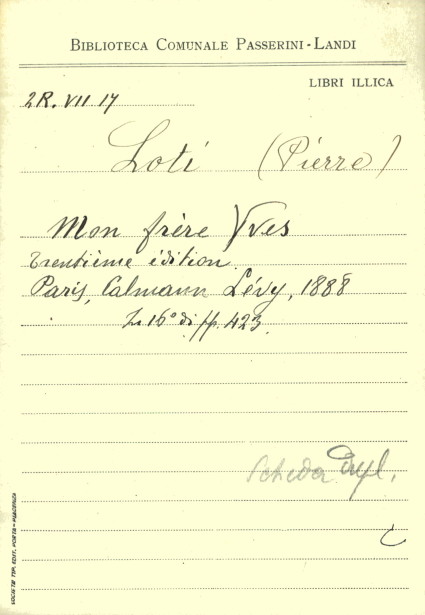 BIBLIOTECA COMUNALE PASSERINI-LANDI
LIBRI ILLICA
2R. VII 17
Loti (Pierre)
Mon frère Yves
Trentième édition
Paris, Calmann Lévy, 1888
In 16° di pp. 423.
Scheda dupl.
SOCIETÀ TIP. EDIT. PORTA - PIACENZA